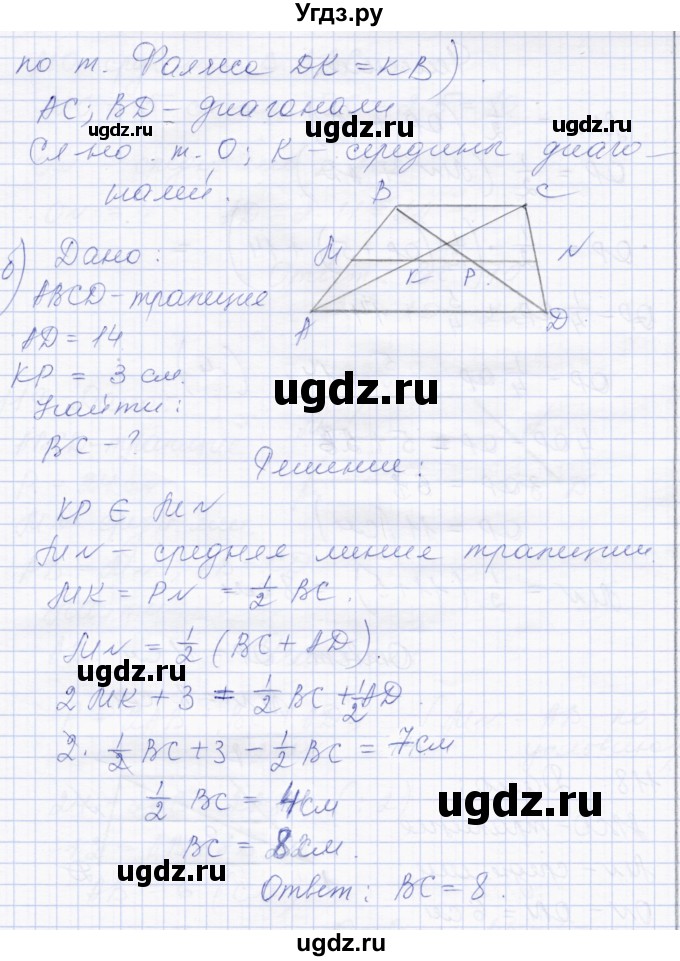 Угдз.ру
по т. Фалеса DK = KB)
AC; BD – диагонали
ugdz.ru ugdz.ru
Сл-но. т. O; K – середины диаго-
налей.
ugdz.ru
B C
б) Дано: M N
K P
ABCD – трапеция
A D
AD = 14
KP = 3 см.
ugdz.ru
Найти:
BC – ?
Решение:
ugdz.ru
KP ∈ MN
MN – средняя линия трапеции
MK = PN = 1/2 BC.
ugdz.ru
MN = 1/2 (BC + AD).
ugdz.ru
2 MK + 3 = 1/2 BC + 1/2 AD.
2 · 1/2 BC + 3 – 1/2 BC = 7 см
1/2 BC = 4 см
ugdz.ru
BC = 8 см.
ugdz.ru
Ответ: BC = 8.
ugdz.ru